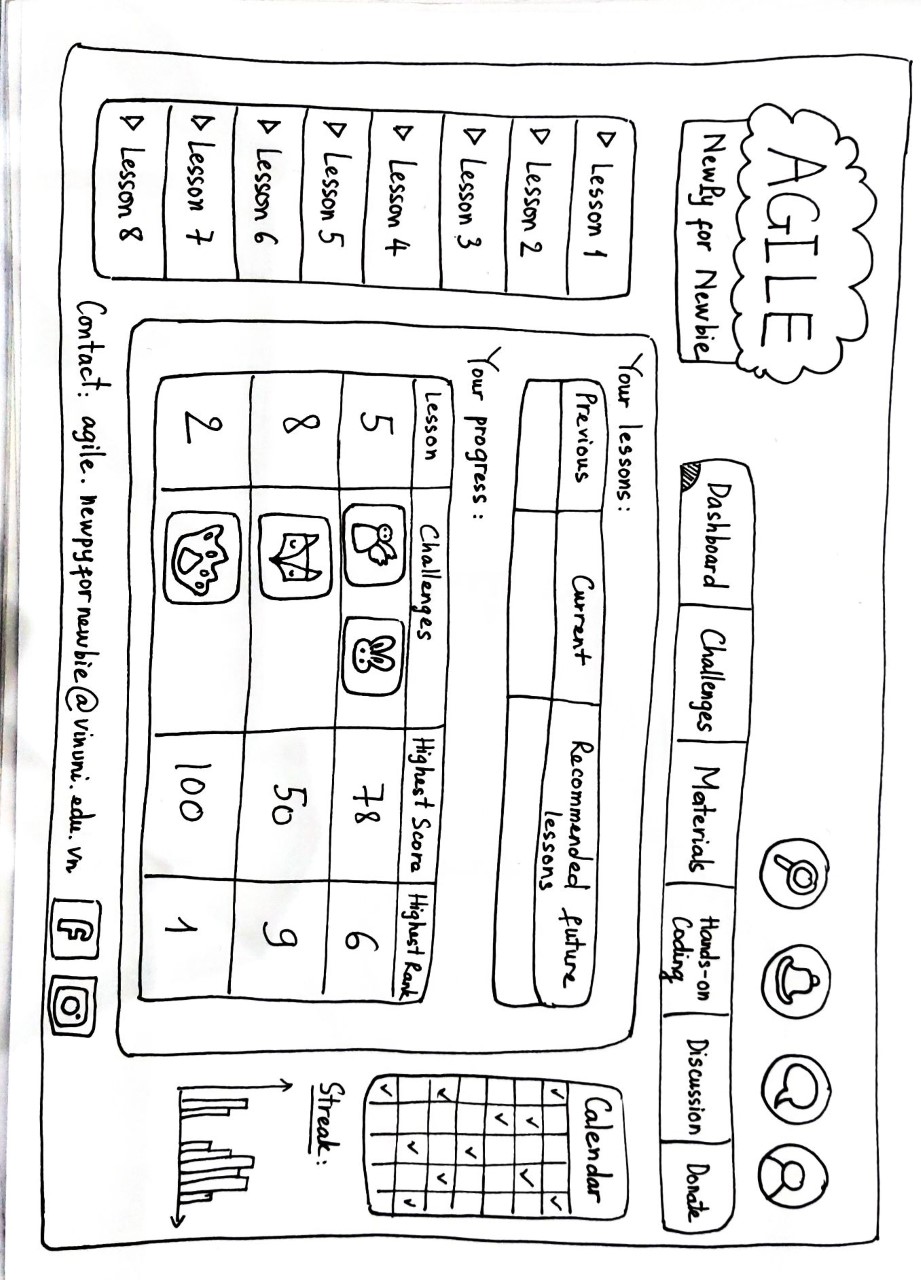 AGILE
NewPy for Newbie
Dashboard
Challenges
Materials
Hands-on
Coding
Discussion
Donate
Lesson 1
Lesson 2
Lesson 3
Lesson 4
Lesson 5
Lesson 6
Lesson 7
Lesson 8
Your lessons:
Previous Current Recommended future
lessons
Your progress:
Lesson Challenges Highest Score Highest Rank
5 78 6
8 50 9
2 100 1
Calendar
Streak:
Contact: agile.newpyfornewbie@vinuni.edu.vn